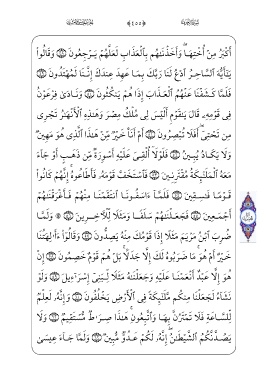 أَكْبَرُ مِنْ أُخْتِهَا وَأَخَذْنَاهُم بِالْعَذَابِ لَعَلَّهُمْ يَرْجِعُونَ ۝ وَقَالُوا
يَا أَيُّهَ السَّاحِرُ ادْعُ لَنَا رَبَّكَ بِمَا عَهِدَ عِندَكَ إِنَّنَا لَمُهْتَدُونَ ۝
فَلَمَّا كَشَفْنَا عَنْهُمُ الْعَذَابَ إِذَا هُمْ يَنكُثُونَ ۝ وَنَادَىٰ فِرْعَوْنُ
فِي قَوْمِهِ قَالَ يَا قَوْمِ أَلَيْسَ لِي مُلْكُ مِصْرَ وَهَٰذِهِ الْأَنْهَارُ تَجْرِي
مِن تَحْتِي أَفَلَا تُبْصِرُونَ ۝ أَمْ أَنَا خَيْرٌ مِّنْ هَٰذَا الَّذِي هُوَ مَهِينٌ
وَلَا يَكَادُ يُبِينُ ۝ فَلَوْلَا أُلْقِيَ عَلَيْهِ أَسْوِرَةٌ مِّن ذَهَبٍ أَوْ جَاءَ
مَعَهُ الْمَلَائِكَةُ مُقْتَرِنِينَ ۝ فَاسْتَخَفَّ قَوْمَهُ فَأَطَاعُوهُ إِنَّهُمْ كَانُوا
قَوْمًا فَاسِقِينَ ۝ فَلَمَّا آسَفُونَا انتَقَمْنَا مِنْهُمْ فَأَغْرَقْنَاهُمْ
أَجْمَعِينَ ۝ فَجَعَلْنَاهُمْ سَلَفًا وَمَثَلًا لِّلْآخِرِينَ ۝ وَلَمَّا
ضُرِبَ ابْنُ مَرْيَمَ مَثَلًا إِذَا قَوْمُكَ مِنْهُ يَصِدُّونَ ۝ وَقَالُوا أَآلِهَتُنَا
خَيْرٌ أَمْ هُوَ مَا ضَرَبُوهُ لَكَ إِلَّا جَدَلًا بَلْ هُمْ قَوْمٌ خَصِمُونَ ۝ إِنْ
هُوَ إِلَّا عَبْدٌ أَنْعَمْنَا عَلَيْهِ وَجَعَلْنَاهُ مَثَلًا لِّبَنِي إِسْرَائِيلَ ۝ وَلَوْ
نَشَاءُ لَجَعَلْنَا مِنكُم مَّلَائِكَةً فِي الْأَرْضِ يَخْلُفُونَ ۝ وَإِنَّهُ لَعِلْمٌ
لِّلسَّاعَةِ فَلَا تَمْتَرُنَّ بِهَا وَاتَّبِعُونِ هَٰذَا صِرَاطٌ مُّسْتَقِيمٌ ۝ وَلَا
يَصُدَّنَّكُمُ الشَّيْطَانُ إِنَّهُ لَكُمْ عَدُوٌّ مُّبِينٌ ۝ وَلَمَّا جَاءَ عِيسَىٰ